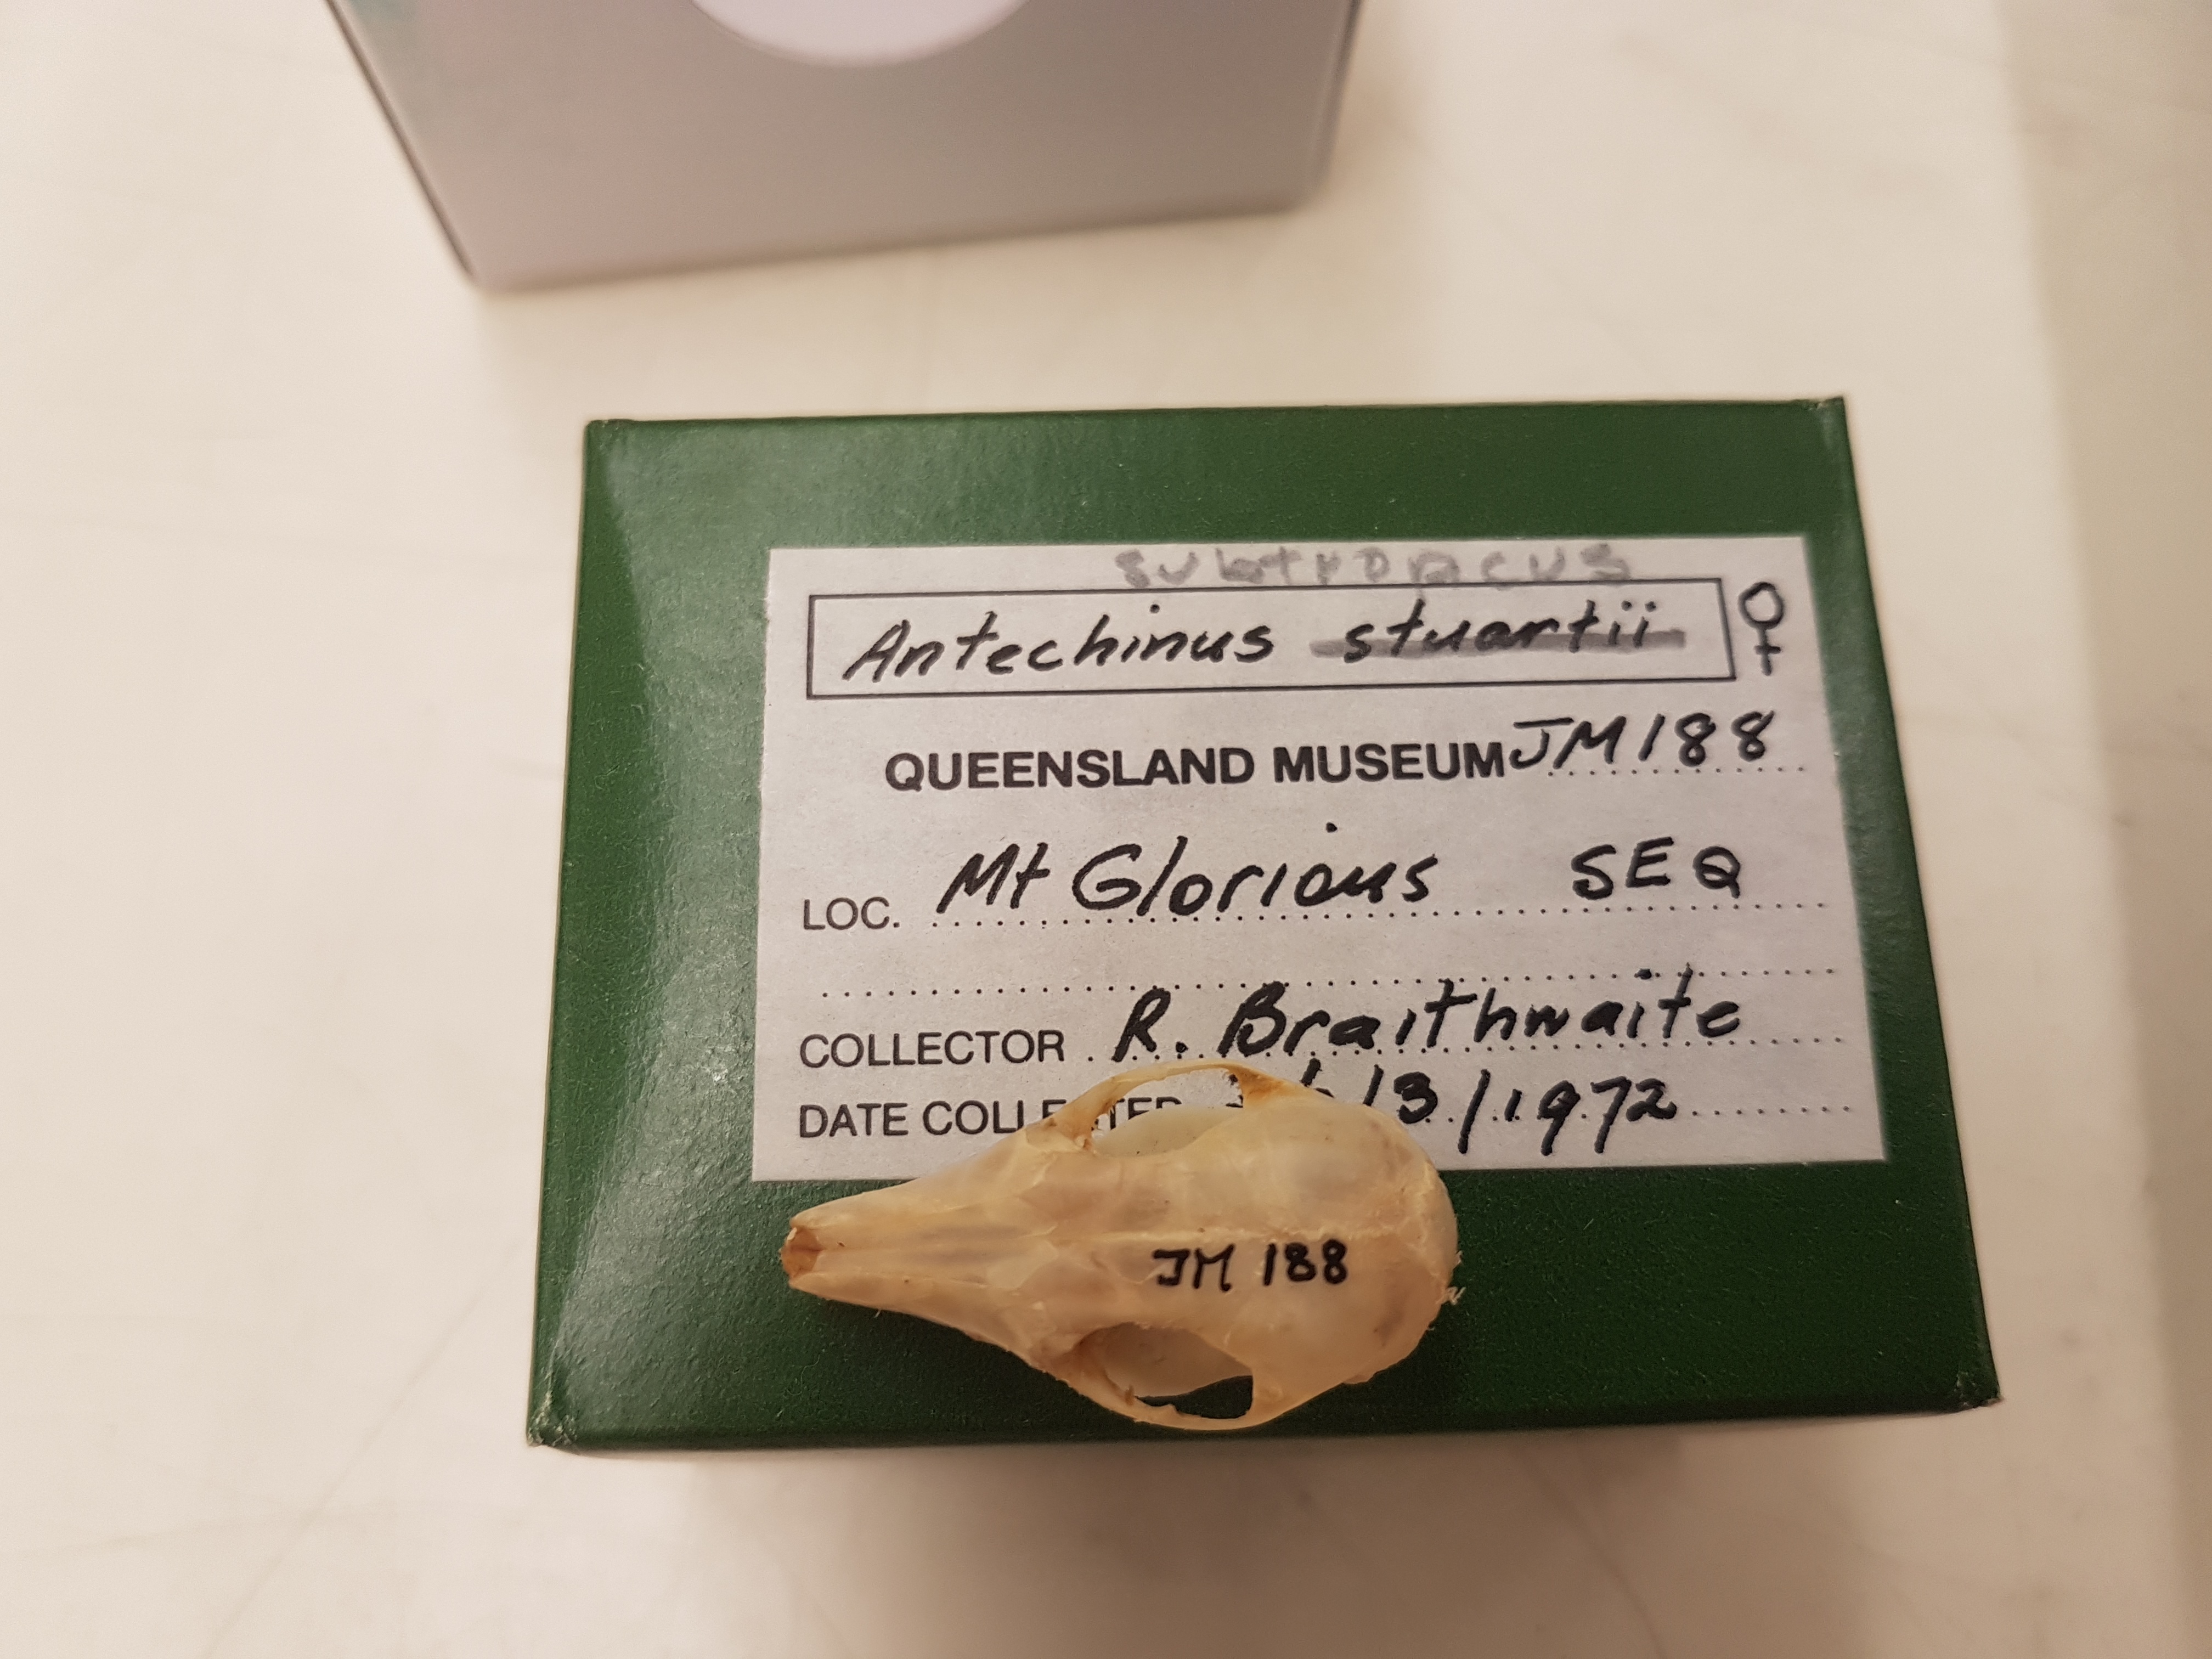 subtropicus
Antechinus stuartii ♀
QUEENSLAND MUSEUM JM188
LOC. Mt Glorious SEQ
COLLECTOR R. Braithwaite
DATE /3/1972
JM 188